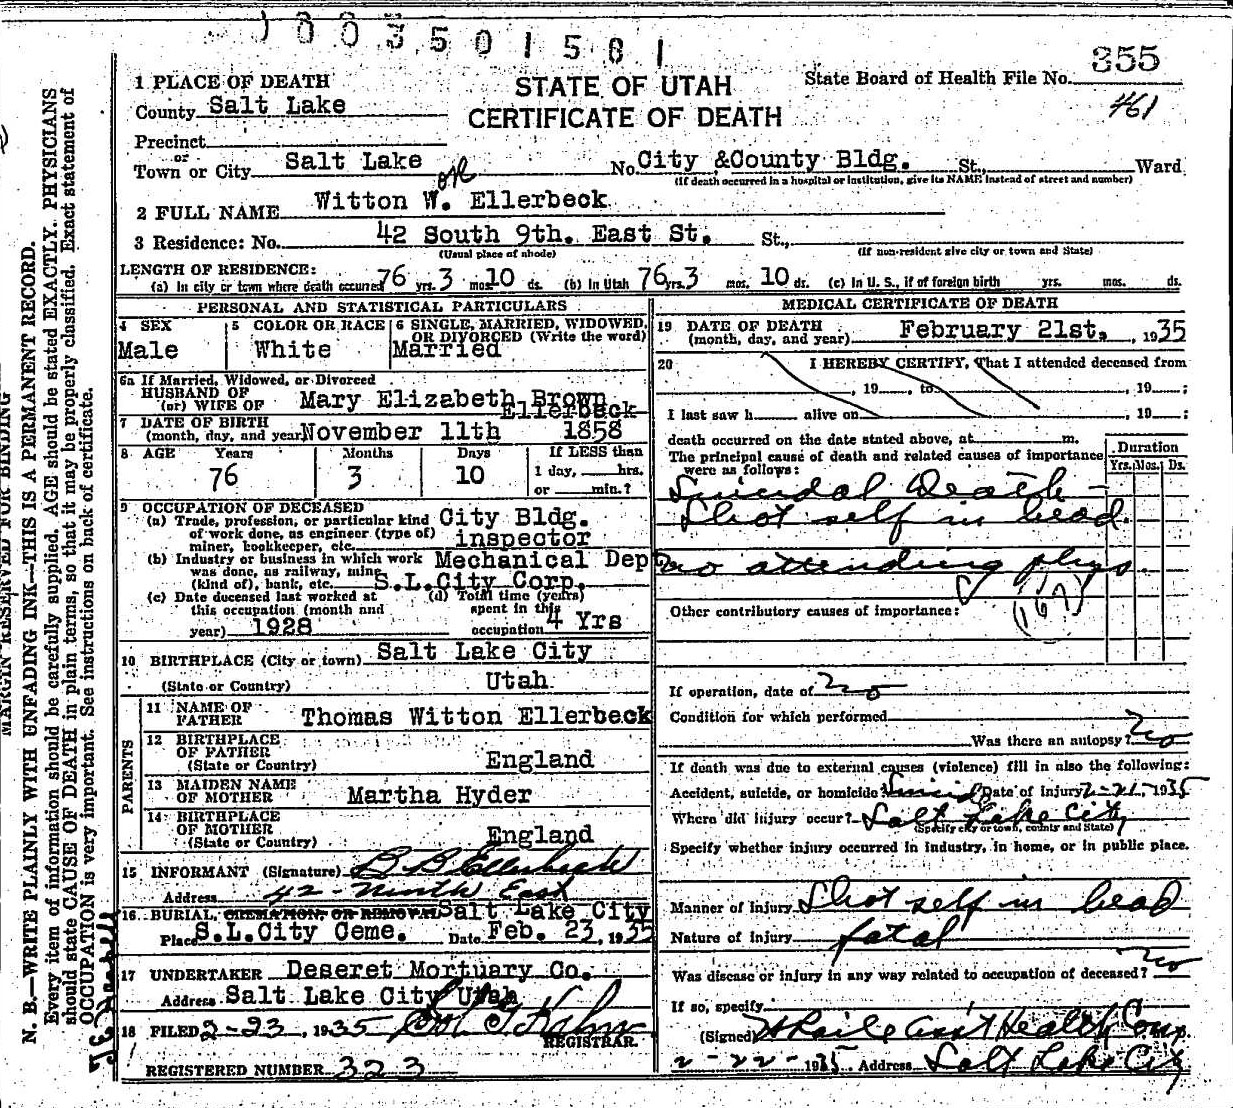 1003501581
1 PLACE OF DEATH
STATE OF UTAH
CERTIFICATE OF DEATH
State Board of Health File No. 355
461
County Salt Lake
Precinct
or
Town or City Salt Lake No. City &County Bldg. St., Ward
(If death occurred in a hospital or institution, give its NAME instead of street and number)
OK
2 FULL NAME Witton W. Ellerbeck
3 Residence: No. 42 South 9th. East St. St.,
(Usual place of abode) (If non-resident give city or town and State)
LENGTH OF RESIDENCE:
(a) In city or town where death occurred 76 yrs. 3 mos. 10 ds. (b) In Utah 76 yrs. 3 mos. 10 ds. (c) In U. S., if of foreign birth yrs. mos. ds.
PERSONAL AND STATISTICAL PARTICULARS
4 SEX
Male
5 COLOR OR RACE
White
6 SINGLE, MARRIED, WIDOWED,
OR DIVORCED (Write the word)
Married
6a If Married, Widowed, or Divorced
HUSBAND OF
(or) WIFE OF Mary Elizabeth Brown
Ellerbeck
7 DATE OF BIRTH
(month, day, and year) November 11th 1858
8 AGE Years Months Days If LESS than
76 3 10 1 day, hrs.
or min.?
9 OCCUPATION OF DECEASED
(a) Trade, profession, or particular kind City Bldg.
of work done, as engineer (type of) inspector
miner, bookkeeper, etc.
(b) Industry or business in which work Mechanical Dep
was done, as railway, mine
(kind of), bank, etc. S.L.City Corp.
(c) Date duceased last worked at (d) Total time (years)
this occupation (month and spent in this
year) 1928 occupation 4 Yrs
10 BIRTHPLACE (City or town) Salt Lake City
(State or Country) Utah
PARENTS
11 NAME OF
FATHER Thomas Witton Ellerbeck
12 BIRTHPLACE
OF FATHER
(State or Country) England
13 MAIDEN NAME
OF MOTHER Martha Hyder
14 BIRTHPLACE
OF MOTHER
(State or Country) England
15 INFORMANT (Signature) B B Ellerbeck
Address 42 - Ninth East
16 BURIAL, CREMATION, OR REMOVAL Salt Lake City
Place S.L.City Ceme. Date Feb. 23, 1935
17 UNDERTAKER Deseret Mortuary Co.
Address Salt Lake City Utah
18 FILED 2-23, 1935
REGISTRAR.
REGISTERED NUMBER 323
MEDICAL CERTIFICATE OF DEATH
19 DATE OF DEATH
(month, day, and year) February 21st, , 1935
20 I HEREBY CERTIFY, That I attended deceased from
, 19 , to , 19 ;
I last saw h alive on , 19 ;
death occurred on the date stated above, at m.
The principal cause of death and related causes of importance
were as follows:
Duration
Yrs. Mos. Ds.
Suicidal Death -
Shot self in head.
no attending phys.
(167)
Other contributory causes of importance:
If operation, date of no
Condition for which performed
Was there an autopsy? no
If death was due to external causes (violence) fill in also the following:
Accident, suicide, or homicide? Suicide Date of injury 2-21-, 1935
Where did injury occur? Salt Lake City
(Specify city or town, county and State)
Specify whether injury occurred in industry, in home, or in public place.
Manner of injury Shot self in head
Nature of injury fatal
Was disease or injury in any way related to occupation of deceased? no
If so, specify
(Signed) Ass't Health Com.
2-22-1935. Address Salt Lake City
MARGIN RESERVED FOR BINDING
N. B.—WRITE PLAINLY WITH UNFADING INK—THIS IS A PERMANENT RECORD.
Every item of information should be carefully supplied. AGE should be stated EXACTLY. PHYSICIANS
should state CAUSE OF DEATH in plain terms, so that it may be properly classified. Exact statement of
OCCUPATION is very important. See instructions on back of certificate.